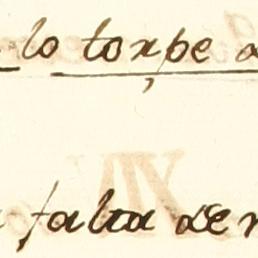 lo torpe
falta de